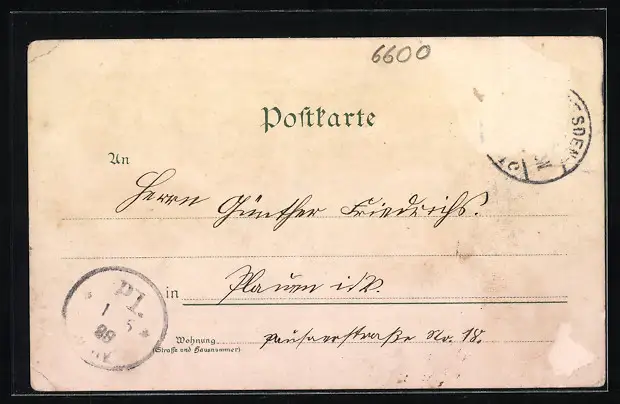 6600
Postkarte
SDEN-
An Herrn Günther Friedrichs.
in Plauen i.V.
Pl.
1 5
98
Wohnung Pausaerstraße No. 18.
(Straße und Hausnummer)